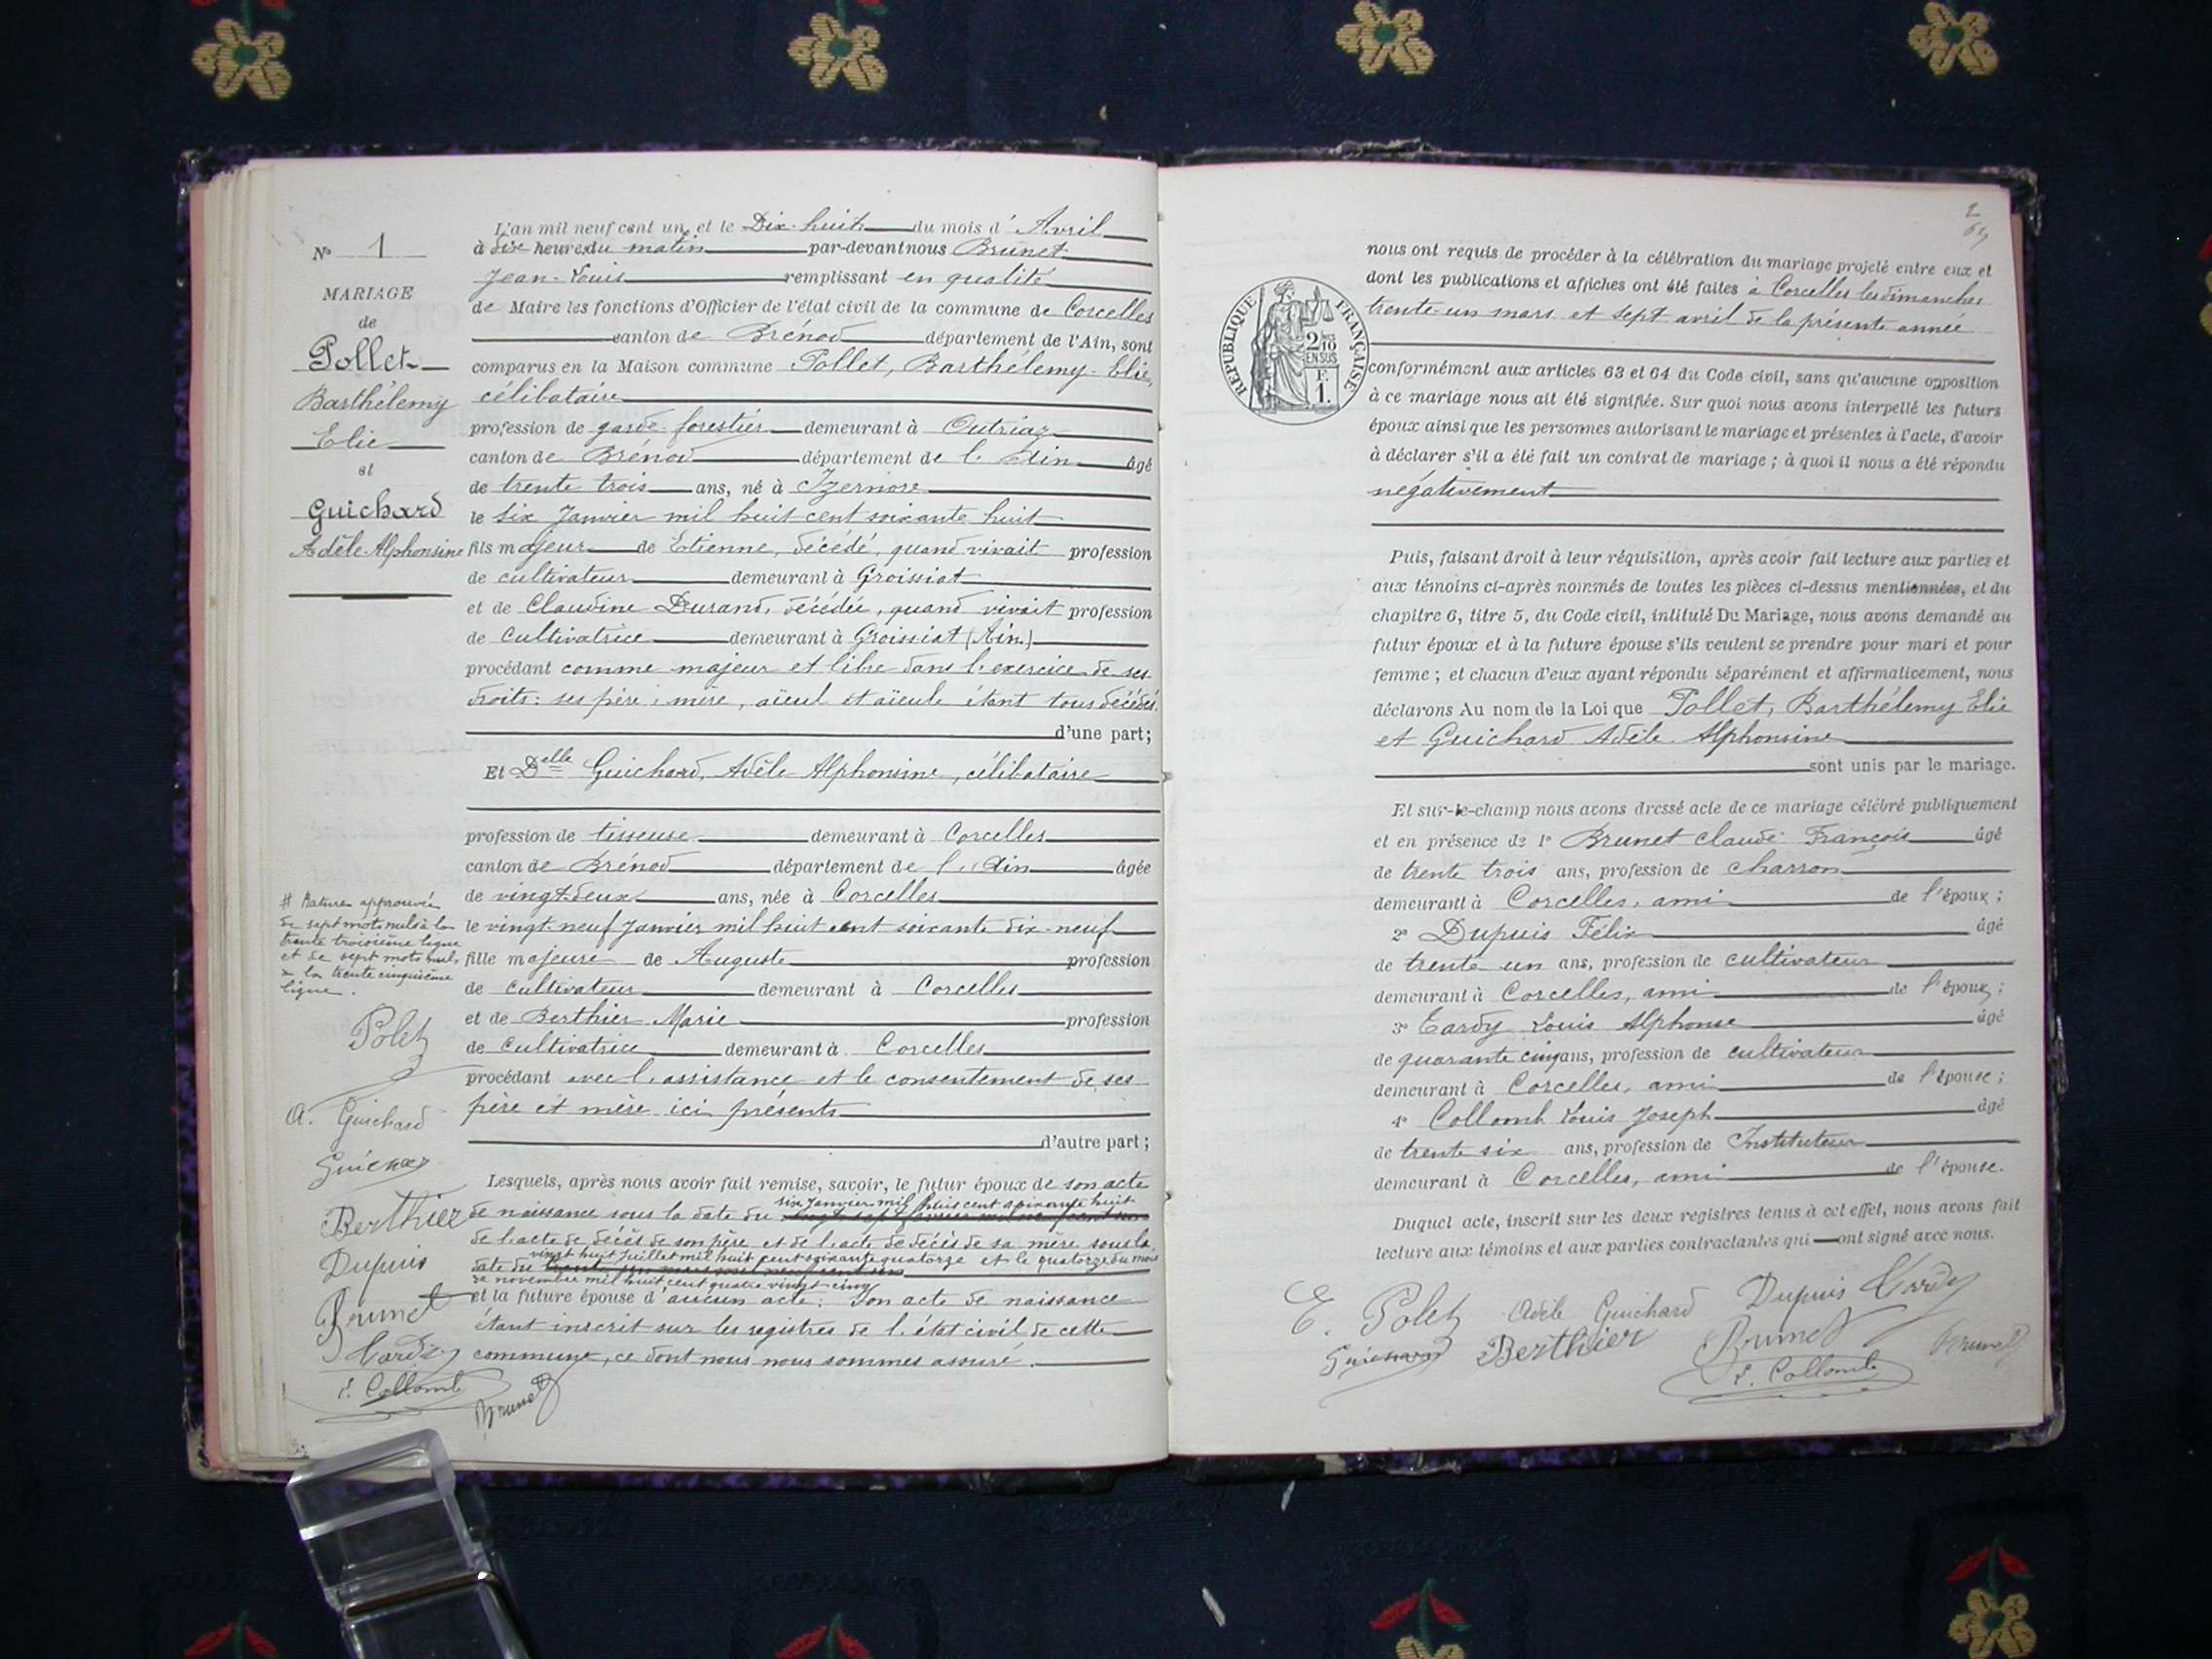 N° 1
MARIAGE
de
Pollet
Barthélemy
Elie
et
Guichard
Adèle-Alphonsine
L'an mil neuf cent un, et le Dix-huit du mois d'Avril
à dix heures du matin par-devant nous Brunet
Jean-Louis remplissant en qualité
de Maire les fonctions d'Officier de l'état civil de la commune de Corcelles
canton de Brénod département de l'Ain, sont
comparus en la Maison commune Pollet, Barthélemy-Elie,
célibataire
profession de garde-forestier demeurant à Outriaz
canton de Brénod département de l'Ain âgé
de trente trois ans, né à Izernore
le six Janvier mil huit cent soixante huit
fils majeur de Etienne, décédé, quand vivait profession
de cultivateur demeurant à Groissiat
et de Claudine Durand, décédée, quand vivait profession
de cultivatrice demeurant à Groissiat (Ain.)
procédant comme majeur et libre dans l'exercice de ses
droits: ses père, mère, aïeul et aïeule étant tous décédés.
d'une part;
Et Delle Guichard, Adèle Alphonsine, célibataire
profession de tisseuse demeurant à Corcelles
canton de Brénod département de l'Ain âgée
de vingt-deux ans, née à Corcelles
le vingt-neuf Janvier mil huit cent soixante dix-neuf
fille majeure de Auguste profession
de cultivateur demeurant à Corcelles
et de Berthier Marie profession
de cultivatrice demeurant à Corcelles
procédant avec l'assistance et le consentement de ses
père et mère ici présents
d'autre part;
Lesquels, après nous avoir fait remise, savoir, le futur époux de son acte
six Janvier mil huit cent soixante huit
de naissance sous la date du
de l'acte de décès de son père et de l'acte de décès de sa mère sous la
vingt huit Juillet mil huit cent soixante quatorze et le quatorze du mois
date du
de novembre mil huit cent quatre vingt-cinq
et la future épouse d'aucun acte: son acte de naissance
étant inscrit sur les registres de l'état civil de cette
commune, ce dont nous nous sommes assuré.
# Rature approuvée
de sept mots nuls à la
trente troisième ligne
et de sept mots nuls
à la trente cinquième
ligne.
Polet
A. Guichard
Guichard
Berthier
Dupuis
Brunet
Tardy
L. Collomb
Brunet
2
REPUBLIQUE FRANÇAISE
2/10
EN SUS
F.
1.
nous ont requis de procéder à la célébration du mariage projeté entre eux et
dont les publications et affiches ont été faites à Corcelles les dimanches
trente-un mars et sept avril de la présente année
conformément aux articles 63 et 64 du Code civil, sans qu'aucune opposition
à ce mariage nous ait été signifiée. Sur quoi nous avons interpellé les futurs
époux ainsi que les personnes autorisant le mariage et présentes à l'acte, d'avoir
à déclarer s'il a été fait un contrat de mariage; à quoi il nous a été répondu
négativement
Puis, faisant droit à leur réquisition, après avoir fait lecture aux parties et
aux témoins ci-après nommés de toutes les pièces ci-dessus mentionnées, et du
chapitre 6, titre 5, du Code civil, intitulé Du Mariage, nous avons demandé au
futur époux et à la future épouse s'ils veulent se prendre pour mari et pour
femme; et chacun d'eux ayant répondu séparément et affirmativement, nous
déclarons Au nom de la Loi que Pollet, Barthélemy Elie
et Guichard Adèle Alphonsine
sont unis par le mariage.
Et sur-le-champ nous avons dressé acte de ce mariage célébré publiquement
et en présence de 1° Brunet Claude François âgé
de trente trois ans, profession de charron
demeurant à Corcelles, ami de l'époux;
2° Dupuis Félix âgé
de trente un ans, profession de cultivateur
demeurant à Corcelles, ami de l'époux;
3° Tardy Louis Alphonse âgé
de quarante cinq ans, profession de cultivateur
demeurant à Corcelles, ami de l'épouse;
4° Collomb Louis Joseph âgé
de trente six ans, profession de Instituteur
demeurant à Corcelles, ami de l'épouse.
Duquel acte, inscrit sur les deux registres tenus à cet effet, nous avons fait
lecture aux témoins et aux parties contractantes qui ont signé avec nous.
E. Polet Adèle Guichard Dupuis Tardy
Guichard Berthier Brunet Brunet
L. Collomb